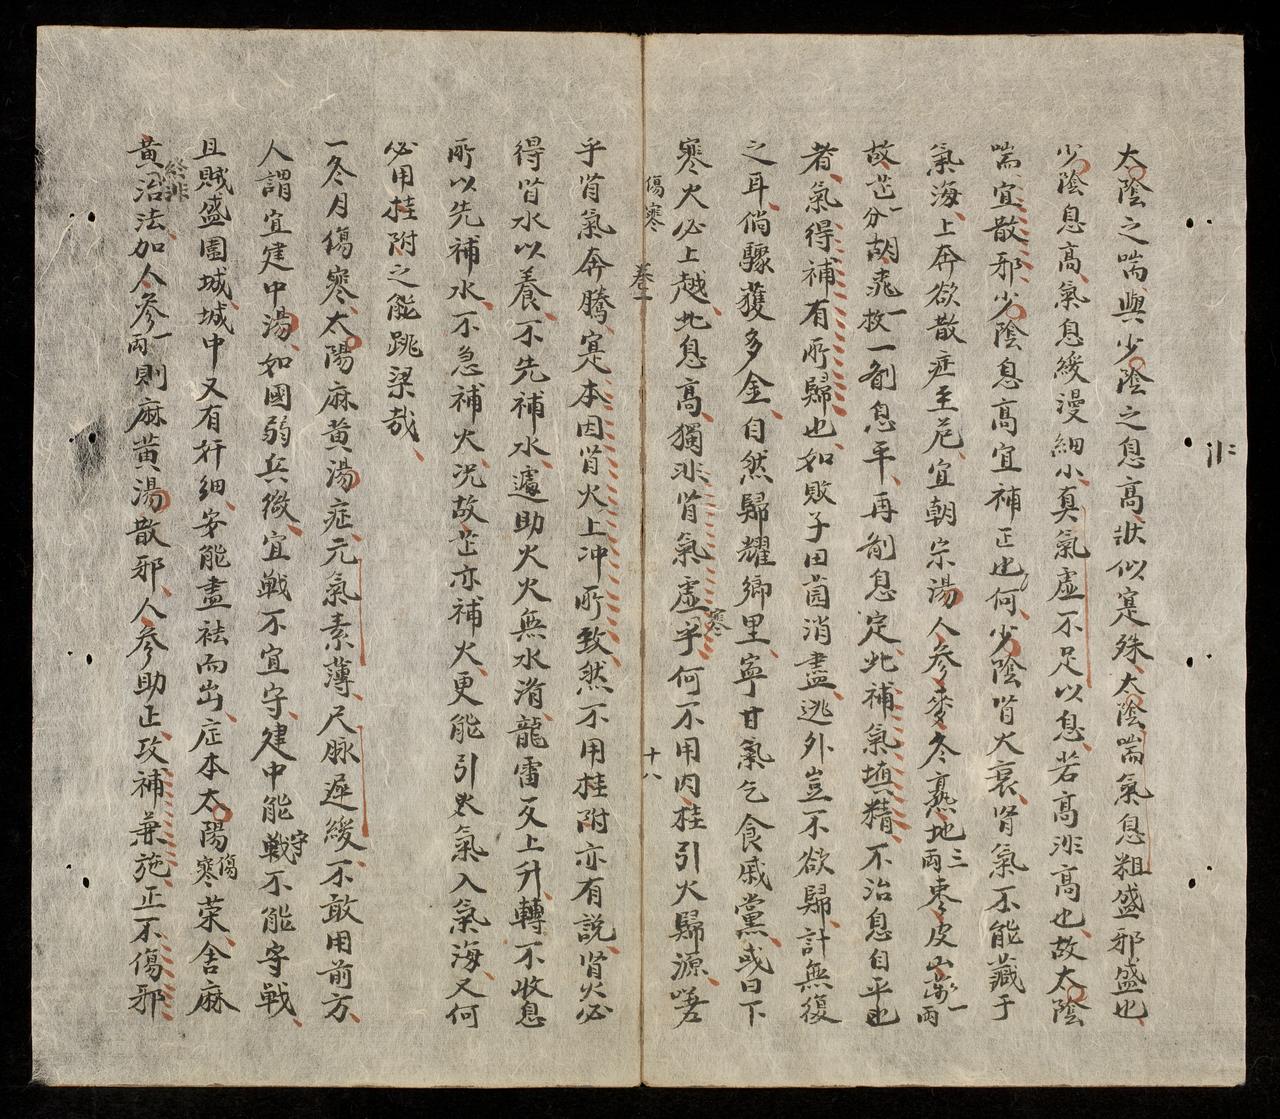 太陰之喘與少陰之息高狀似寔殊太陰喘氣息粗盛邪盛也
少陰息高氣息緩漫細小真氣虛不足以息若高非高也故太陰
喘宜散邪少陰息高宜補正也何少陰腎火衰腎氣不能藏于
氣海上奔欲散症至危宜朝宗湯人參麥冬熟地三兩枣皮山萸一兩
故芷一分胡桃一枚一剤息平再剤息定此補氣填精不治息自平也
者氣得補有所歸也如敗子田園消盡逃外豈不欲歸計無復
之耳倘驟獲多金自然歸耀鄉里寧甘氣乞食戚黨或曰下
寒火必上越此息高獨非腎氣虛寒乎何不用肉桂引火歸源嗟
傷寒
卷一
十八
乎腎氣奔騰寔本因腎火上冲所致然不用桂附亦有說腎火必
得腎水以養不先補水遽助火火無水濟龍雷反上升轉不收息
所以先補水不急補火况故芷亦補火更能引火氣入氣海又何
必用桂附之能跳梁哉
一冬月傷寒太陽麻黄湯症元氣素薄尺脉遲緩不敢用前方
人謂宜建中湯如國弱兵微宜戰不宜守建中能守不能戰
且賊盛圍城城中又有奸細安能盡祛而出症本太陽傷寒荣舍麻
黃終非治法加人參一兩則麻黃湯散邪人參助正攻補兼施正不傷邪
非